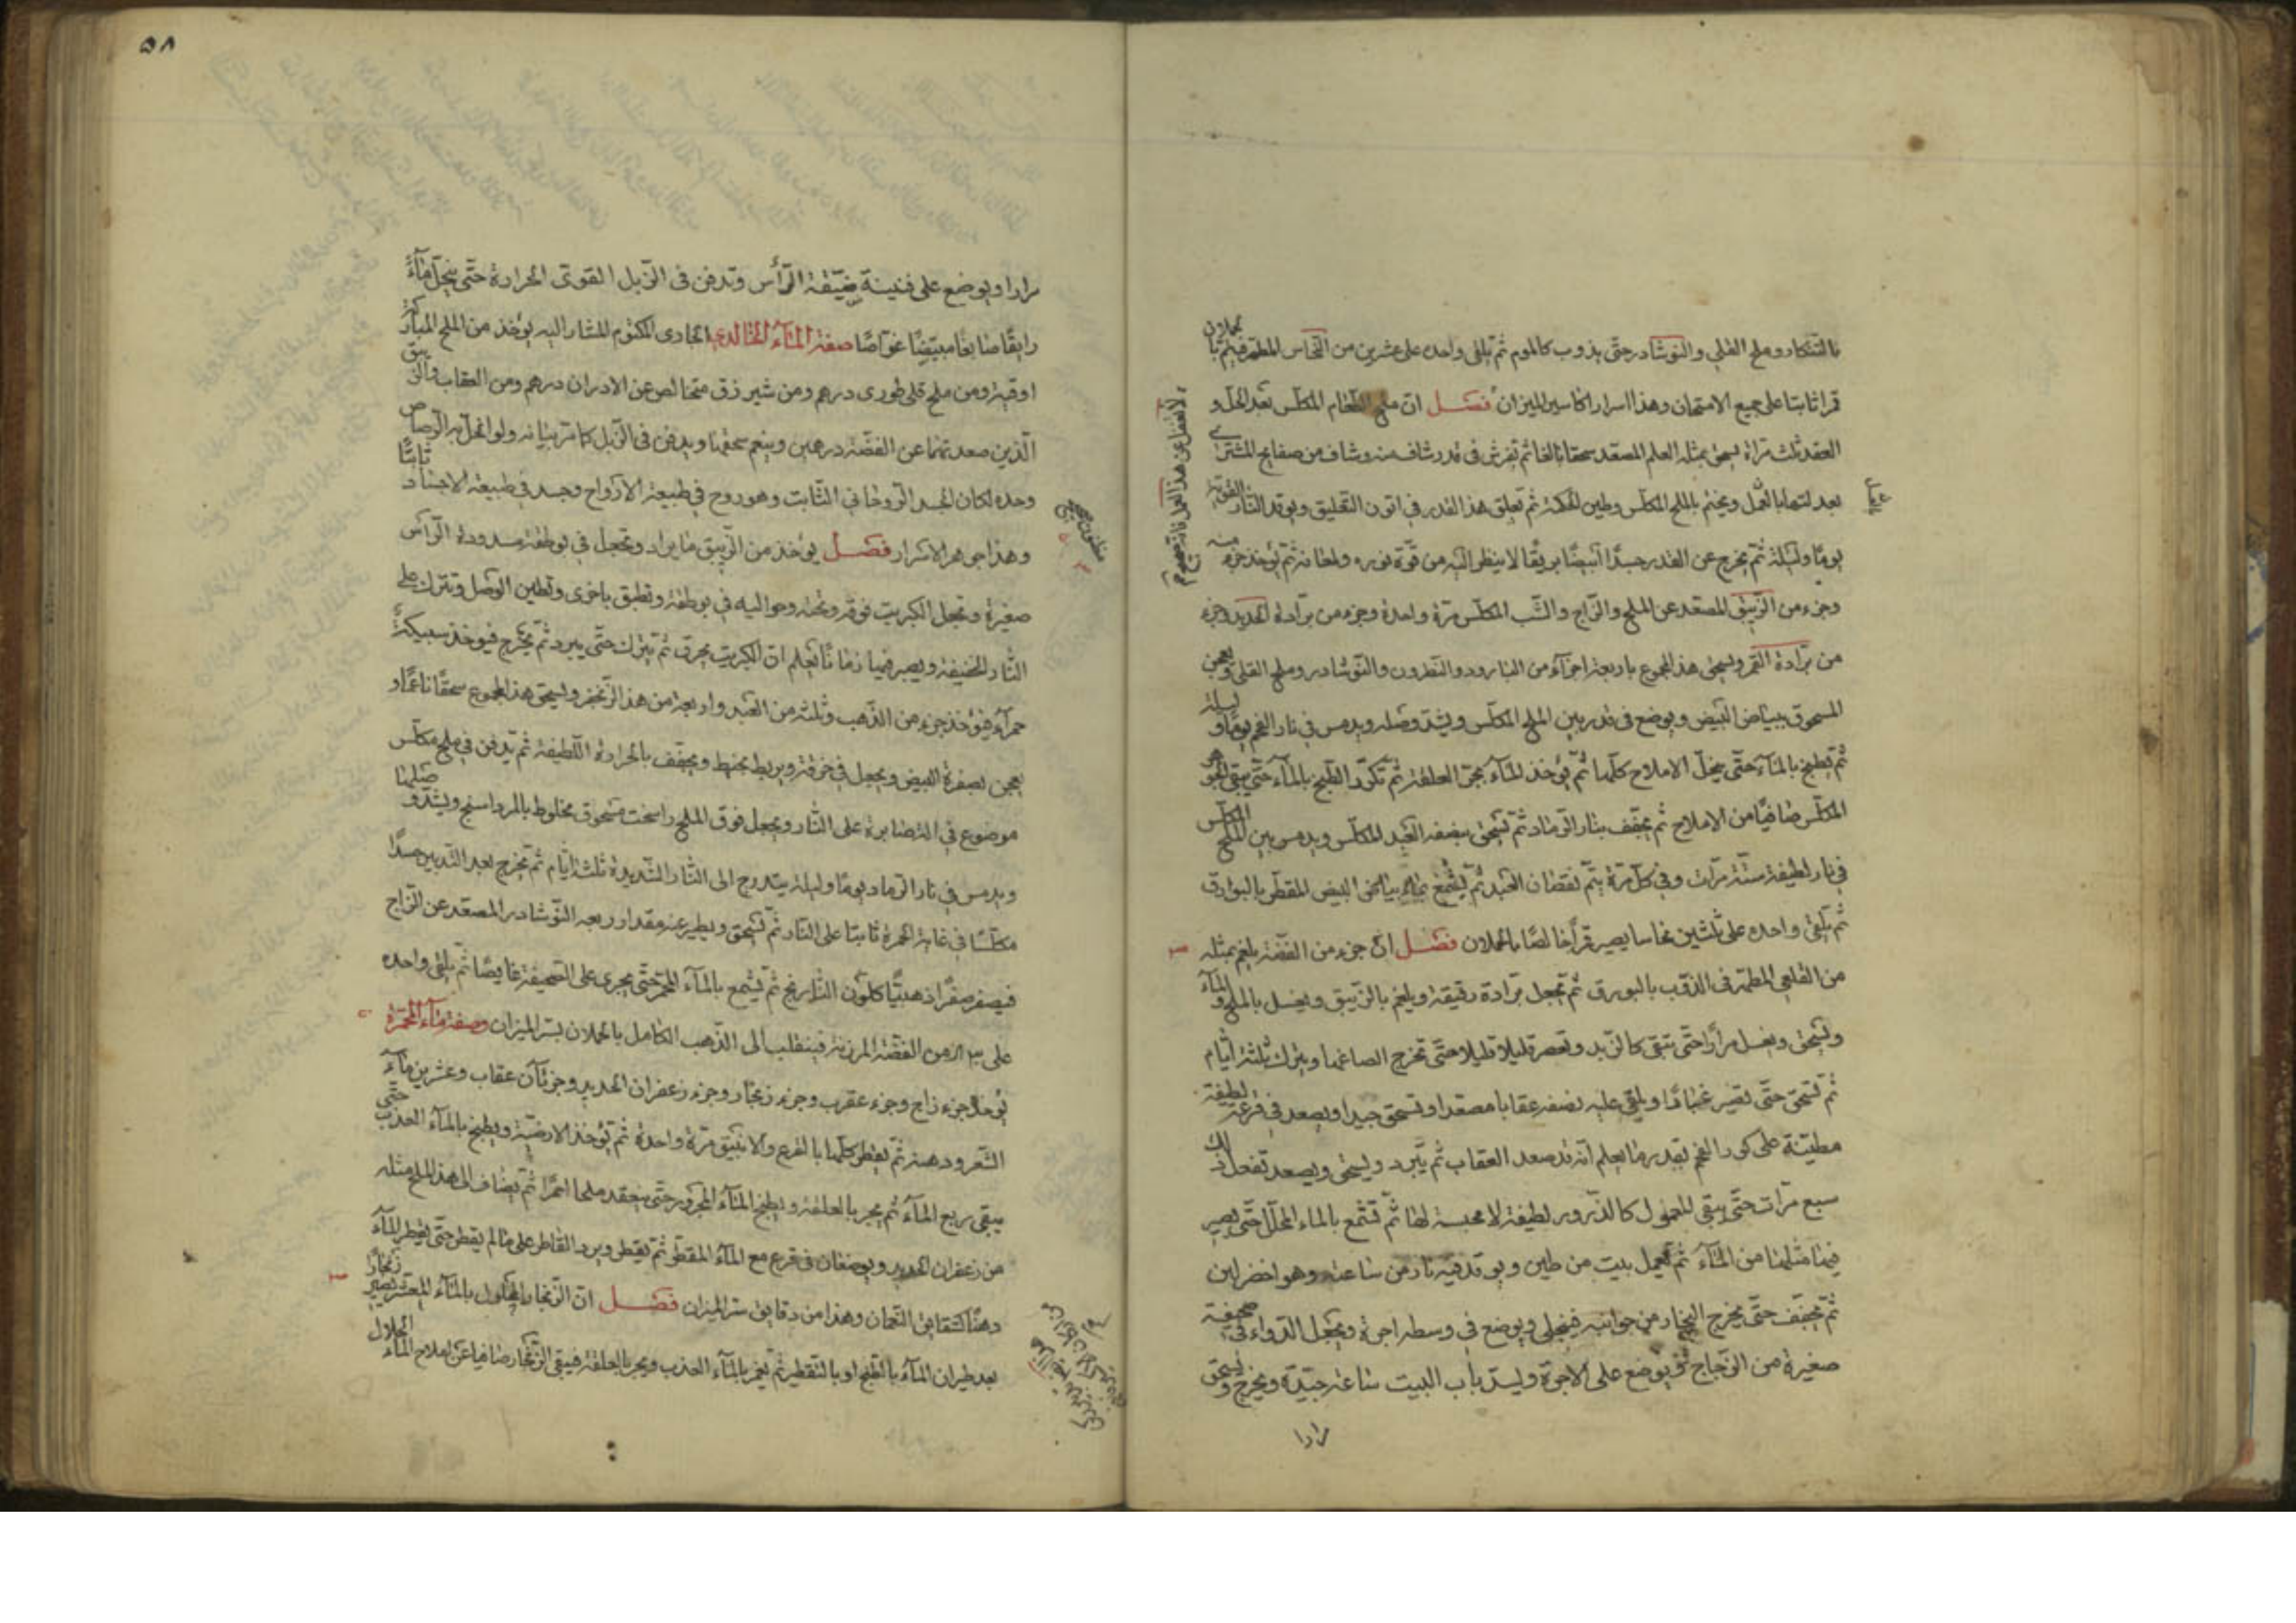 بالتنكار وملح القلي والنوشادر حتى يذوب كالموم ثم يلقى واحده على عشرين من النحاس المطهر فيقيم بالحملان
قمرا ثابتا على جميع الامتحان وهذا اسرار اكاسير الميزان فصل ان ملح الطعام المكلس بعد الحل و
العقد ثلث مراة يسحق بمثله العلم المصعد سحقا بالغا ثم تفرش فى قدر شاف منه وشاف من صفايح المشترى
بعد لتها بالعمل ويختم بالملح المكلس وطين الحكمة ثم تعلق هذا القدر فى اتون التعليق ويوقد النار القوية
يوما وليلة ثم يخرج عن القدر جسدا ابيضا بريقا لا ينظر اليه من قوة نوره ولمعانه ثم يؤخذ منه جزء
وجزء من الزيبق المصعد عن الملح والزاج والشب المكلس مرة واحدة وجزء من برادة الحديد وجزء
من برادة القمر ويسحق هذا المجموع باربعة اجزآء من البارود والنطرون والنوشادر وملح القلى ويعجن
المسحوق ببياض البيض ويوضع فى قدر بين الملح المكلس ويشد وصله ويدمس فى نار الفحم يوما وليلة
ثم يطبخ بالمآء حتى ينحل الاملاح كلها ثم يؤخذ المآء بجر العلقة ثم تكرر الطبخ بالمآء حتى يبقى الجوهر
المكلس صافيا من الاملاح ثم يجفف بنار الرماد ثم تسحق بنصفه العبد المكلس ويدمس بين الملح المكلس
فى نار لطيفة ستة مرات وفى كل مرة يتم نقصان العبد ثم يشمع بمآء بياض البيض المقطر بالبوارق
ثم يلقى واحده على ثلثين نحاسا يصير قمرا خالصا بالحملان فصل ان جزء من الفضة يلغم بمثله
من القلعى المطهر فى الذوب بالبورق ثم تجعل برادة رقيقة ويلغم بالزيبق ويغسل بالملح والمآء
ويسحق ويغسل مرارا حتى تبقى كالزبد وتعصر قليلا قليلا حتى تخرج الصاغها ويترك ثلثة ايام
ثم تسحق حتى تصير غبارا ويلقى عليه نصفه عقابا مصعدا وتسحق جيدا ويصعد فى قرعة لطيفة
مطينة على كور الفحم بقدر ما يعلم انه قد صعد العقاب ثم يبرد ويسحق ويصعد تفعل ذلك
سبع مرات حتى يبقى المعمول كالذرور لطيفة لا محبسة لها ثم تشمع بالماء المحلل حتى يصير
فيها مثلها من المآء ثم تعمل بيت من طين ويوقد فيه نار من ساعته وهو اخضر لين
ثم تجفف حتى يخرج البخار من جوانبه فينجلى ويوضع فى وسطه اجرة وتجعل الدواء فى صحيفة
صغيرة من الزجاج ويوضع على الاجرة ويسد باب البيت ساعة جيدة ويخرج ويسحق
مرارا
لا تغفل عن هذا العمل فانه صحيح
٥٨
مرارا ويوضع على قنينة ضيقة الرأس وتدفن فى الزبل القوى الحرارة حتى ينحل مآءً
رايقا صابغا مبيضا غواصا صفة المآء الخالدى المكتوم المشار اليه يؤخذ من الملح المبارك
اوقية ومن ملح قلى طورى درهم ومن شيرزق متخالص عن الادران درهم ومن العقاب والزيبق
الذين صعدتهما عن الفضة درهمين وينعم سحقها ويدفن فى الزبل كما مر بيانه ولو انحل به الرصاص
وحده لكان الجسد الروحانى الثابت وهو روح فى طبيعة الارواح وجسد فى طبيعة الاجساد ثابتا
وهذا جوهر الاسرار فصل يؤخذ من الزيبق ما يراد وتجعل فى بوطقة مدورة الرأس
صغيرة وتجعل الكبريت فوقه وتحته وحواليه فى بوطقة وتطبق باخرى وتطين الوصل وتترك على
النار الخفيفة ويصبر فيها زمانا يعلم ان الكبريت يحرق ثم يترك حتى يبرد ثم يخرج فيوخذ سبيكة
حمرآء فيؤخذ جزء من الذهب وثلثة من العبد واربعة من هذا الزنجفر ويسحق هذا المجموع سحقا ناعما و
يعجن بصفرة البيض ويجعل فى خرقة ويربط بخيط ويجفف بالحرارة اللطيفة ثم يدفن فى ملح مكلس
موضوع فى الصابرة على النار ويجعل فوق الملح راسخت مسحوق مخلوط بالمرداسنج ويشد وصلها
ويدمس فى نار الرماد يوما وليلة بتدرج الى النار الشديدة ثلثة ايام ثم تخرج بعد التبريد جسدا
مكلسا فى غاية الحمرة ثابتا على النار ثم تسحق ويطير عنه مقدار ربعه النوشادر المصعد عن الزاج
فيصفر صفرا ذهبيا كلون النارنج ثم يشمع بالمآء المحمر حتى يجرى على الصحيفة غايصا ثم يلقى واحده
على من الفضة المرزنة فينقلب الى الذهب الكامل بالحملان بسر الميزان وصفة مآء المحمرة
يؤخذ جزء زاج وجزء عقرب وجزء زنجار وجزء زعفران الحديد وجزئان عقاب وعشرين مآء
الشعر ودهنه ثم يقطر كلها بالقرع والانبيق مرة واحدة ثم يؤخذ الارضية ويطبخ بالمآء العذب حتى
يبقى ربع المآء ثم يجر بالعلقة ويطبخ المآء المجرور حتى ينعقد ملحا احمرا ثم يضاف الى هذا الملح مثله
من زعفران الحديد ويوضعان فى قرع مع المآء المقطر ثم يقطر ويرد القاطر على ما لم يقطر حتى يقطر المآء
دهنا كشقايق النعمان وهذا من دقايق سر الميزان فصل ان الزنجار المحلول بالمآء المعشر يصير زنجارا
بعد طيران المآء بالطبخ او بالتقطير ثم يغمر بالمآء العذب ويجر بالعلقة فيبقى الزنجار صافيا عن املاح المآء الحلال